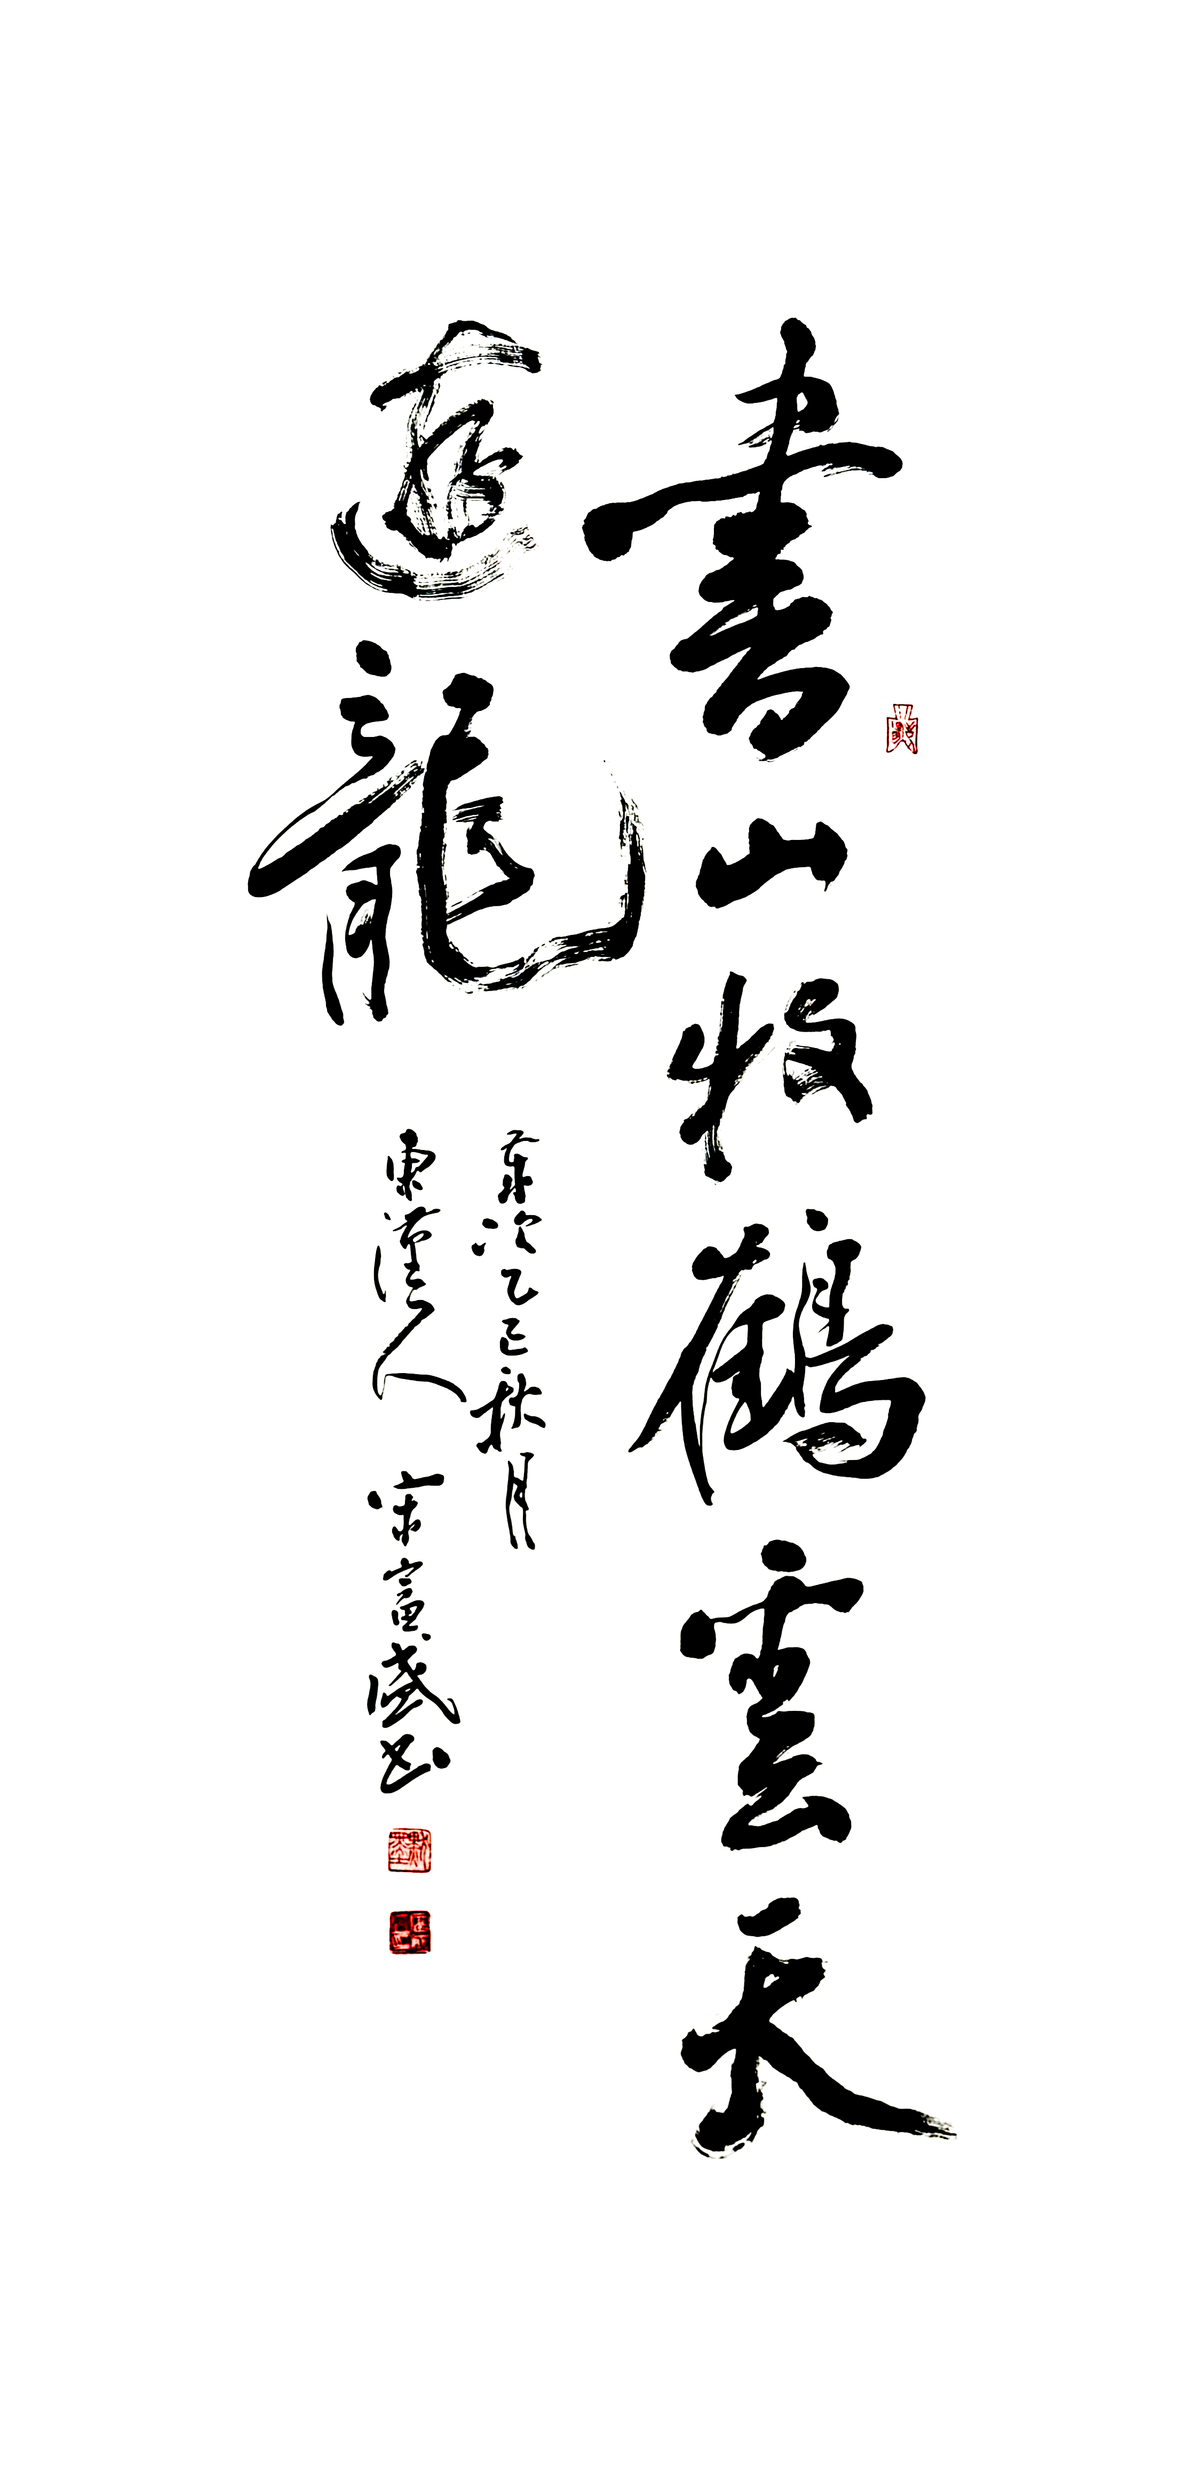 書山牧鶴雲天
遊龍
歲次乙巳秋月
東漢人 宋富盛书